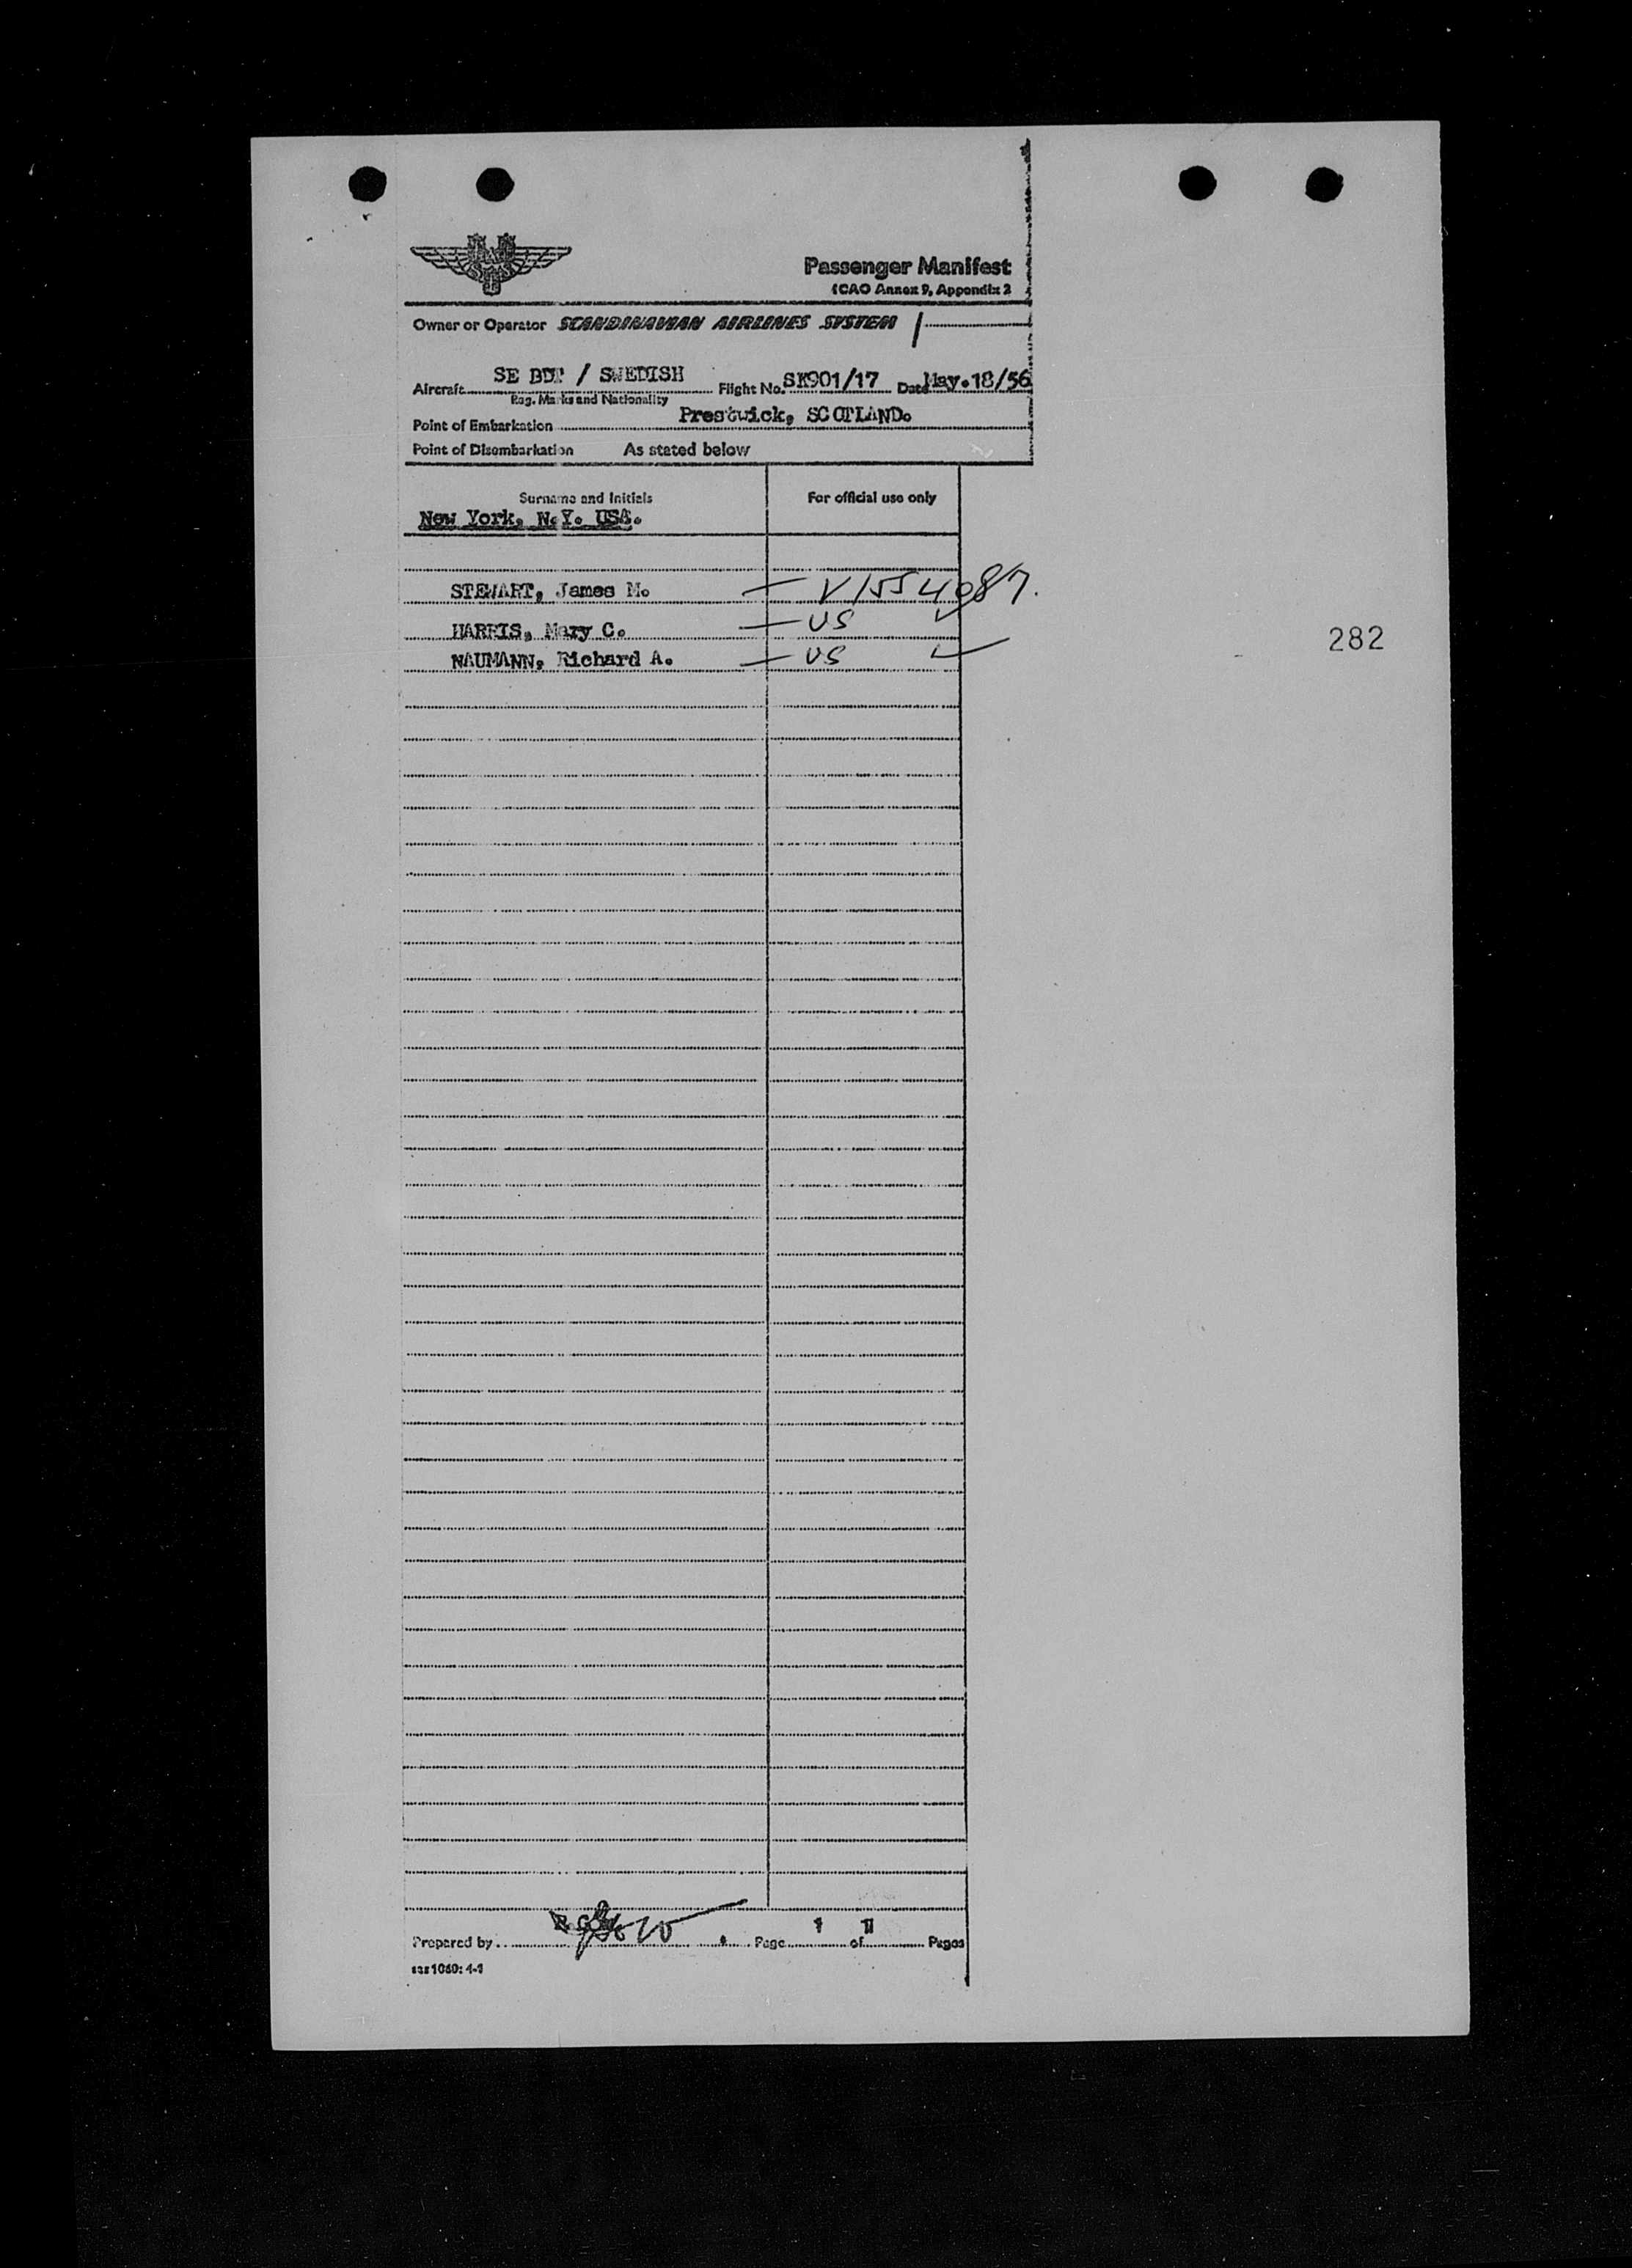 Passenger Manifest
ICAO Annex 9, Appendix 2
Owner or Operator SCANDINAVIAN AIRLINES SYSTEM
Aircraft SE BDP / SWEDISH Flight No. SK901/17 Date May.18/56
Reg. Marks and Nationality
Point of Embarkation Prestwick, SCOTLAND.
Point of Disembarkation As stated below
Surname and Initials For official use only
New York, N.Y. USA.
STEWART, James M. — V1554087.
HARRIS, Mary C. — US ✓
NAUMANN, Richard A. — US ✓
282
Prepared by Page 1 of 1 Pages
sas 1060: 4-1